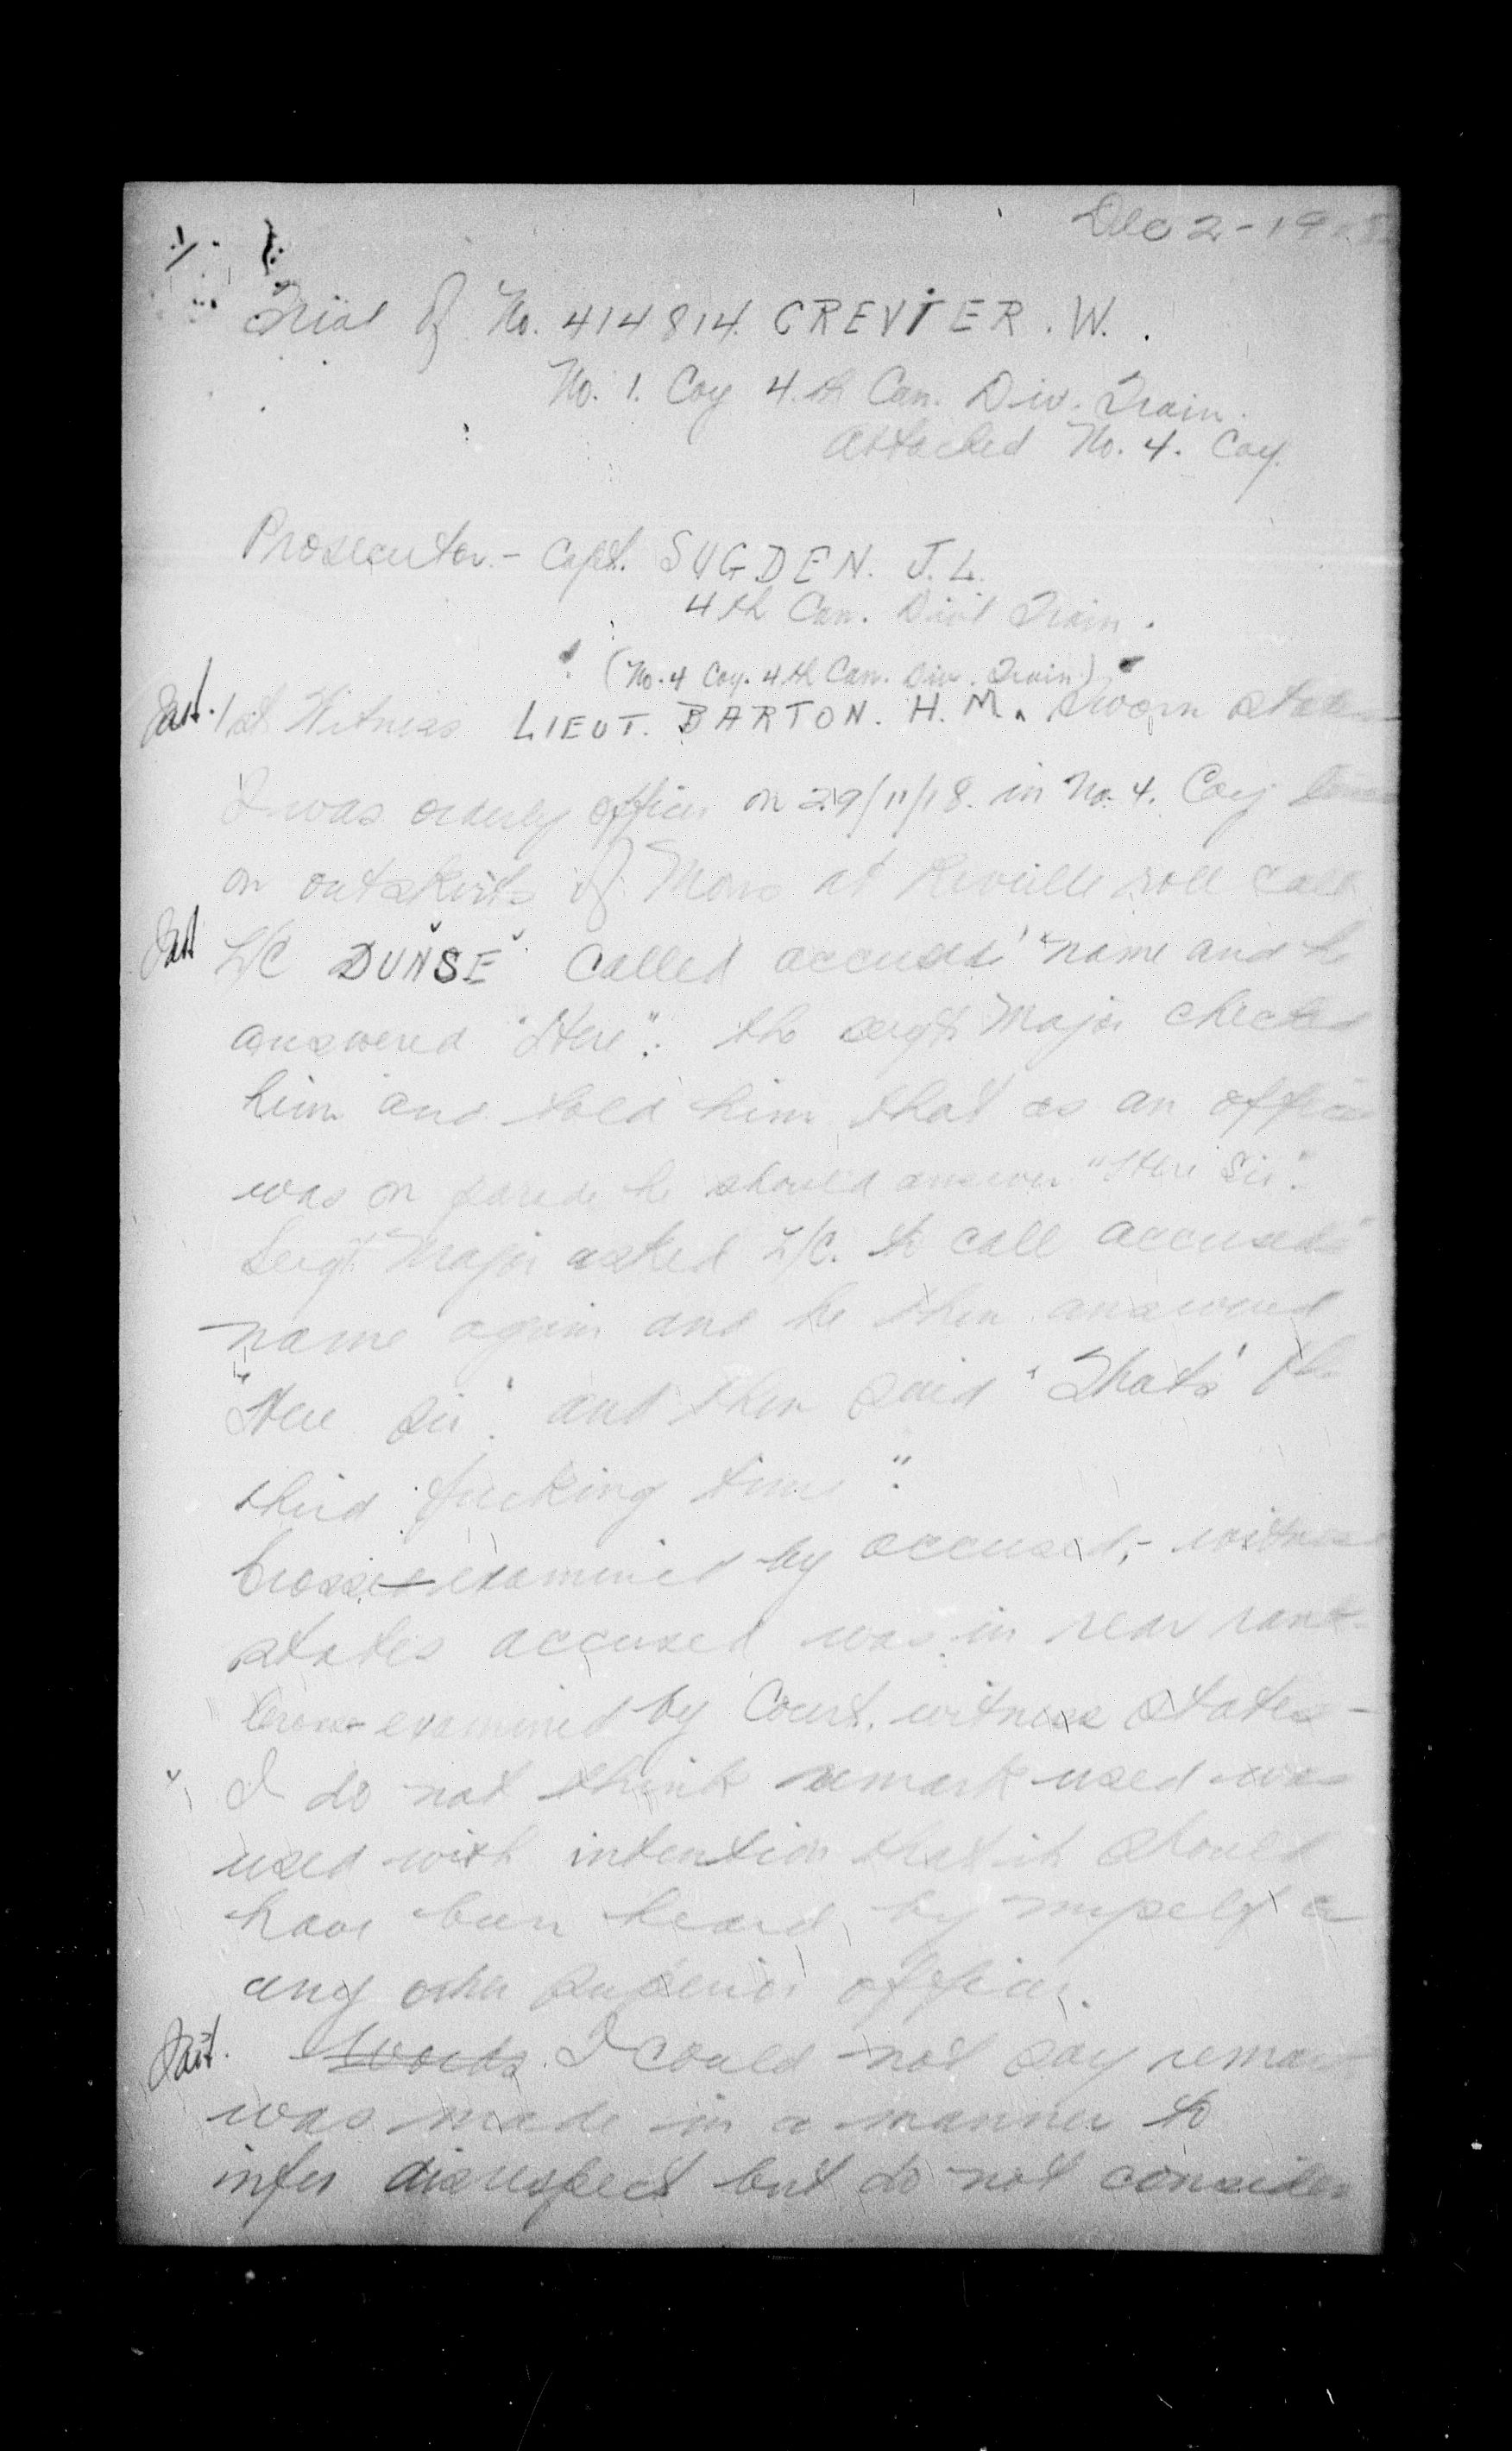 Dec 2 - 19
1/.
Trial of No. 414814 CREVIER. W.
No. 1. Coy 4.th Can. Div. Train.
attached No. 4. Coy.
Prosecutor. - Capt. SUGDEN. J. L.
4th Can. Div'l Train.
(No. 4 Coy. 4th Can. Div. Train)
1st Witness LIEUT. BARTON. H. M. Sworn states
I was orderly officer on 29/11/18. in No. 4. Coy lines
on outskirts of Mons at Reveille roll call
L/C DUNSE called accused's name and he
answered "Here". the Sergt Major checked
him and told him that as an officer
was on parade he should answer "Here Sir".
Sergt. Major asked L/C. to call accused's
name again and he then answered
"Here Sir". and then said "That's the
third fucking time".
Cross-examined by accused, - witness
states accused was in rear rank -
Cross-examined by Court. witness states -
I do not think remark used was
used with intention that it should
have been heard by myself or
any other superior officer.
Words. I could not say remark
was made in a manner to
infer disrespect but do not consider